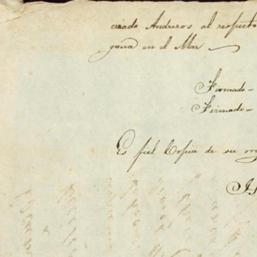 creado Andreos al respecto
para en el Mar
Firmado -
Firmado -
Es fiel Copia de su